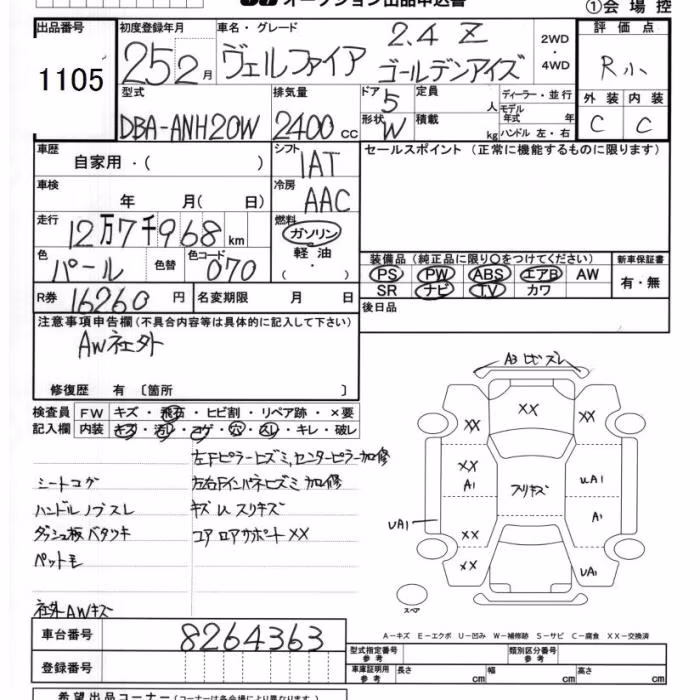 オークション出品申込書
①会場控
出品番号 1105
初度登録年月 25 2月
車名・グレード ヴェルファイア 2.4 Z ゴールデンアイズ
2WD・4WD
評価点 R小
外装 C 内装 C
型式 DBA-ANH20W
排気量 2400cc
ドア 5
形状 W
定員 人
積載 kg
ディーラー・並行
モデル年式 年
ハンドル 左・右
車歴 自家用・( )
シフト IAT
セールスポイント（正常に機能するものに限ります）
車検 年 月( 日)
冷房 AAC
走行 12万7千968km
燃料 ガソリン 軽油 ( ・ )
色 パール 色替 色コード 070
装備品（純正品に限り〇をつけてください）
PS PW ABS エアB AW
SR ナビ TV カワ
新車保証書 有・無
R券 16260円 名変期限 月 日
後日品
注意事項申告欄(不具合内容等は具体的に記入して下さい)
AW社外
修復歴 有 〔箇所 〕
検査員記入欄
FW キズ・飛石・ヒビ割・リペア跡・×要
内装 キズ・汚レ・コゲ・穴・スレ・キレ・破レ
左Fピラーヒズミ,センターピラー加修
シートコゲ 左右Fインパネヒズミ加修
ハンドルノブスレ キズ U スリキズ
ダッシュ板ベタツキ コア ロアサポートXX
ペット毛
社外AWキズ
A3 ヒビ スレ
XX
XX XX
XX
A1 スリキズ UA1
A1
UA1
XX
XX UA1
スペア
A－キズ E－エクボ U－凹み W－補修跡 S－サビ C－腐食 XX－交換済
車台番号 8264363
型式指定番号 参考 類別区分番号 参考
登録番号
車庫証明用 参考 長さ cm 幅 cm 高さ cm
希望出品コーナー（コーナーは各会場により異なります）